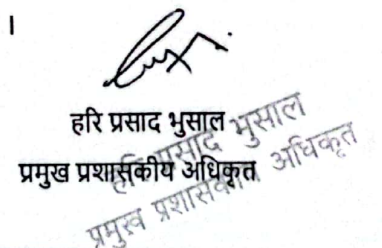 ।
हरि प्रसाद भुसाल
प्रमुख प्रशासकीय अधिकृत
हरि प्रसाद भुसाल
प्रमुख प्रशासकीय अधिकृत